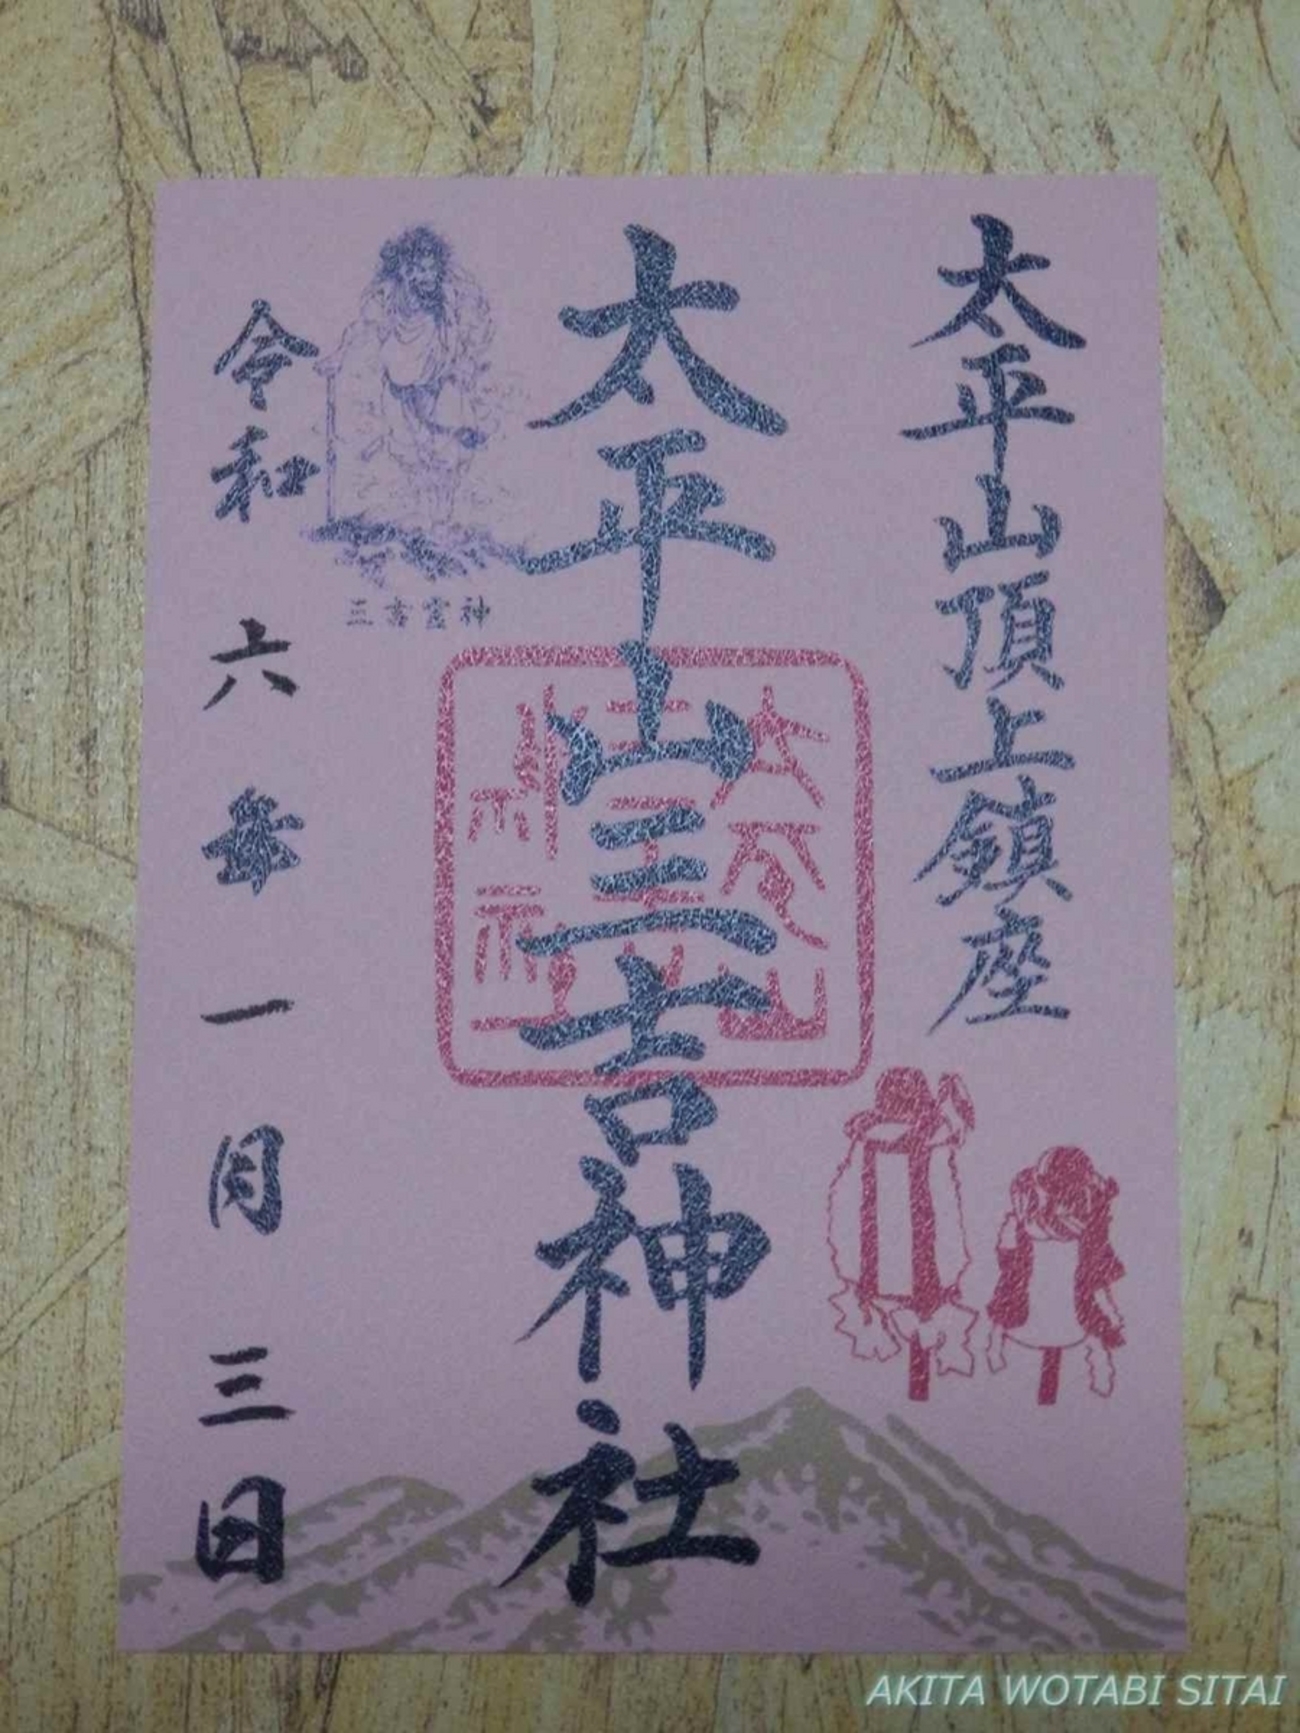 太平山頂上鎮座
太平山三吉神社
三吉霊神
令和六年一月三日
AKITA WOTABI SITAI